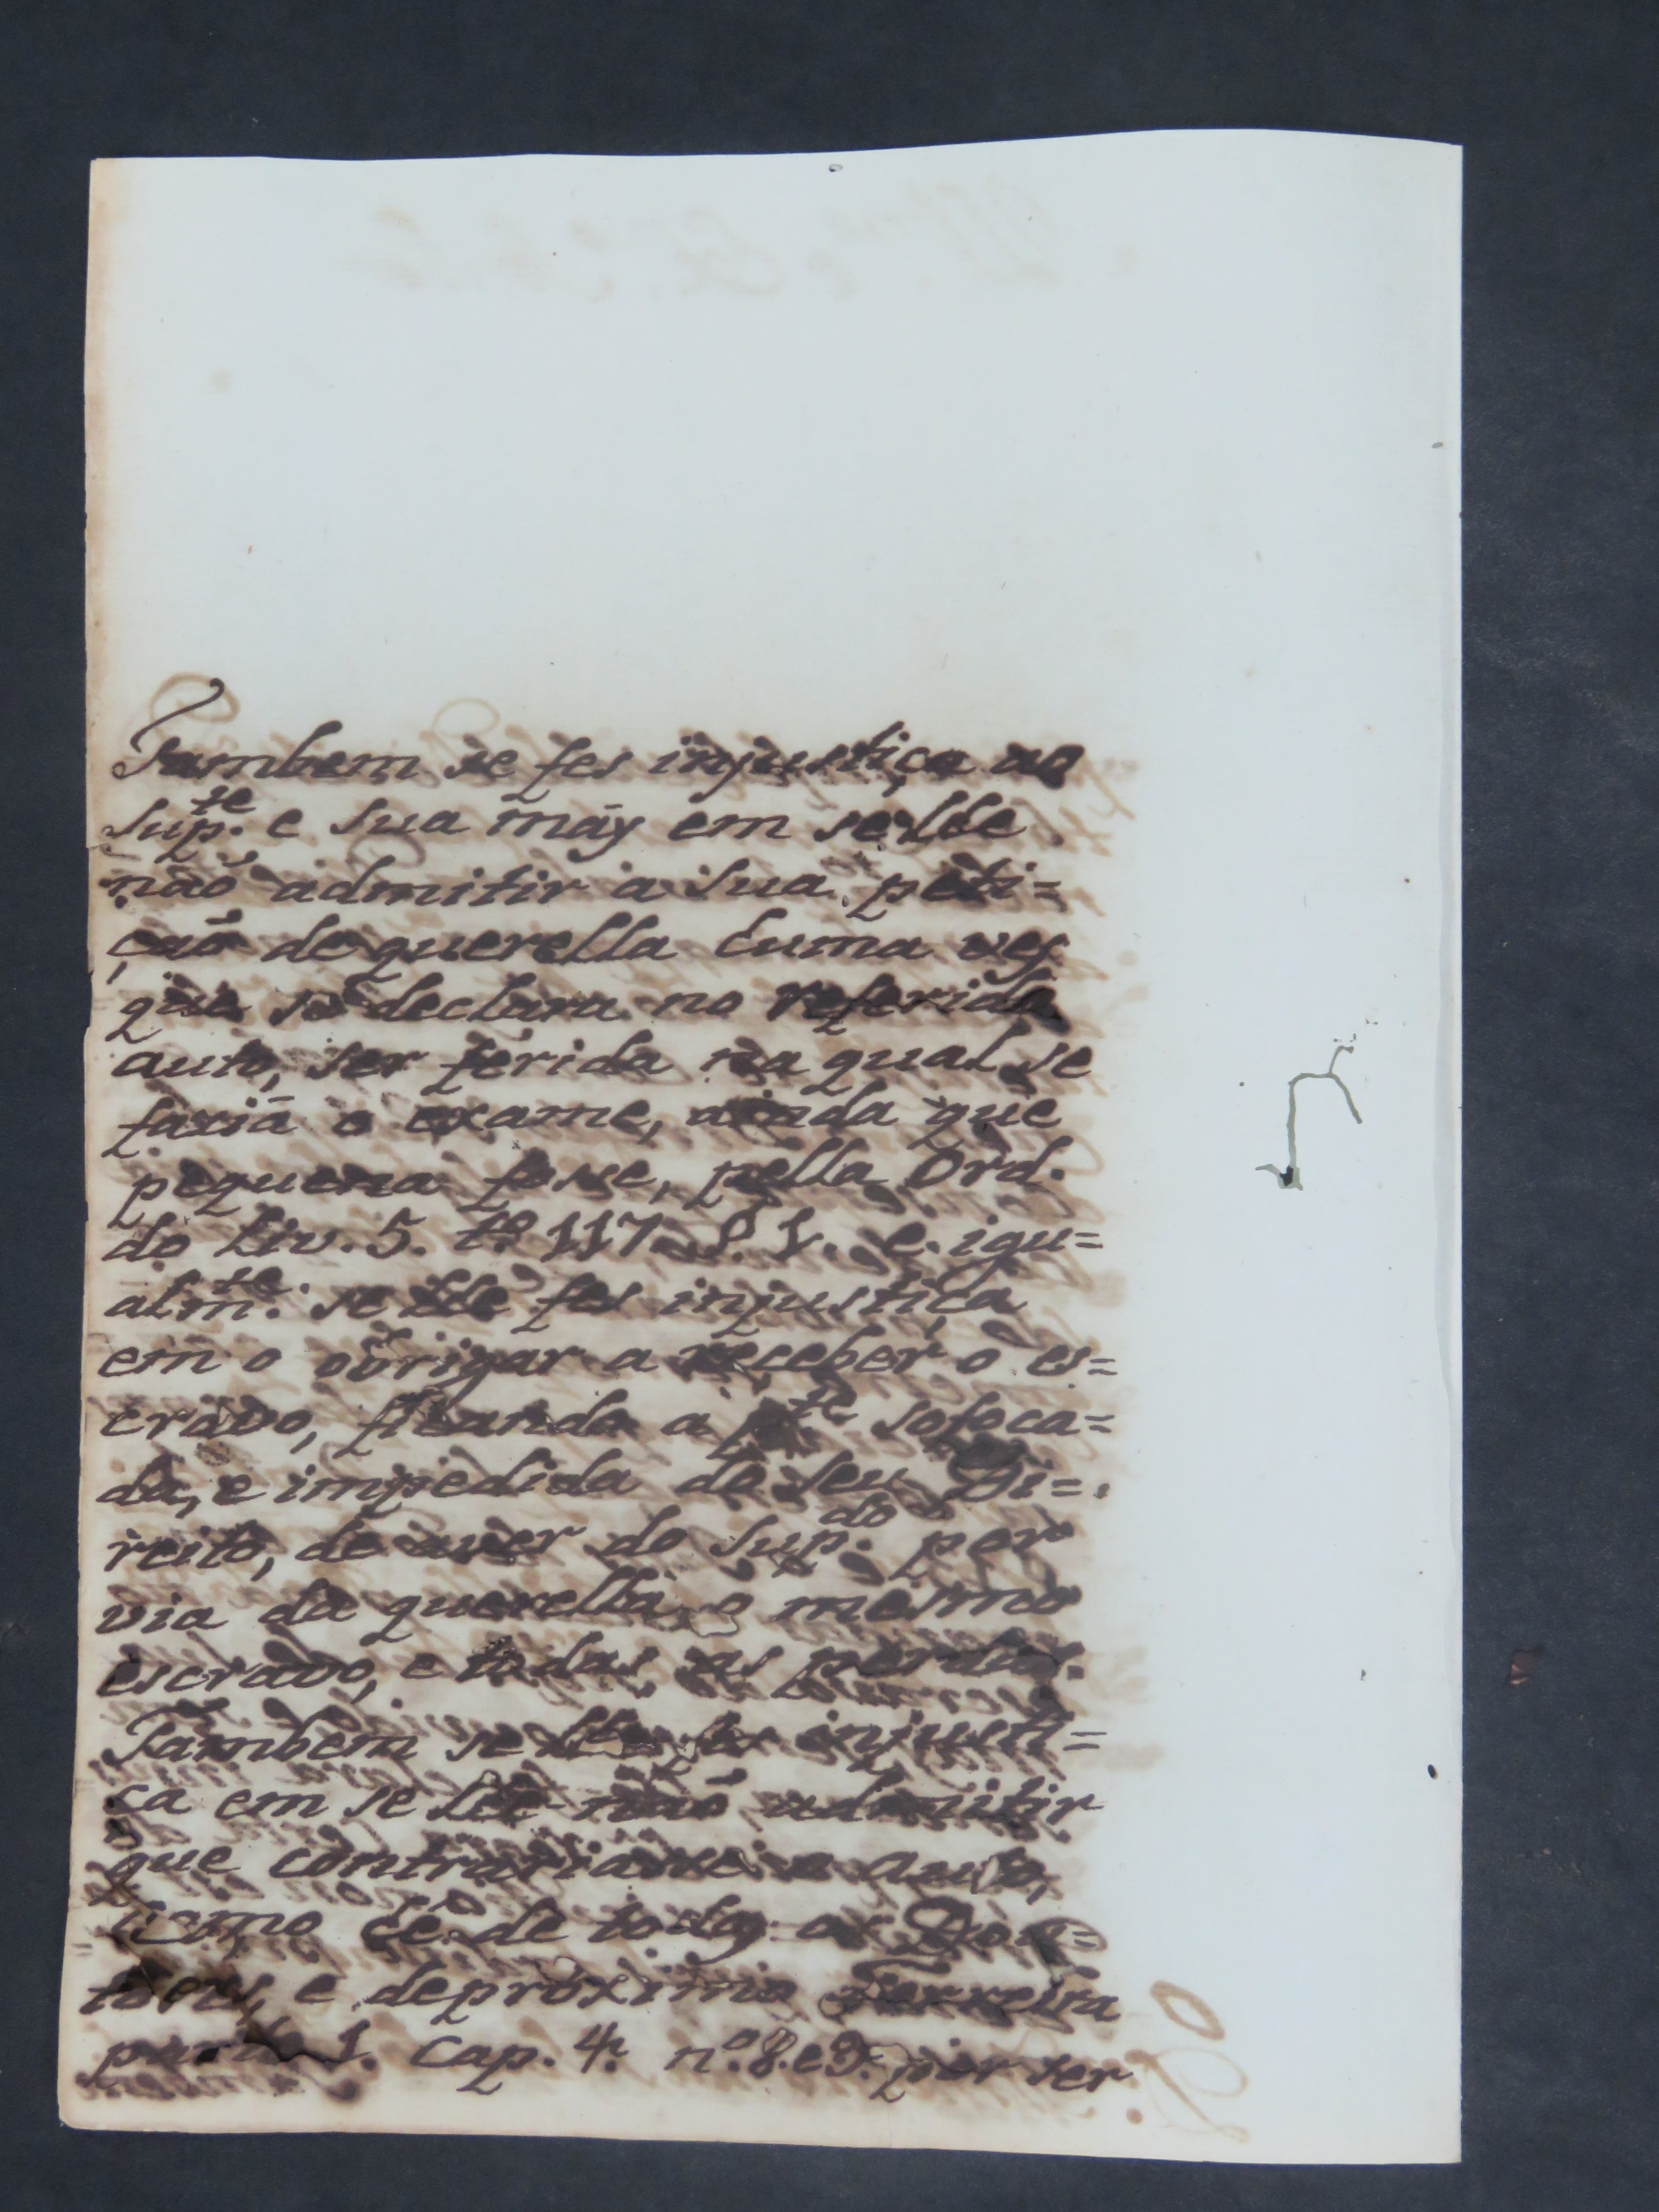 Tambem se fes injustiça ao
Sup.te e sua mãy em se lhe
naõ admitir a sua peti=
çaõ de querella huma ves
que se declara no referido
auto, ser ferida na qual se
faria o exame, ainda que
pequena fosse, pella Ord.
do Liv. 5. t.o 117 §. 1. e igu=
alm.te se lhe fes injustiça
em o obrigar a receber o es=
cravo, ficando a p.te sofoca=
da, e impedida do seu Di=
reito, de aver do Sup.do por
via da querella, o mesmo
escravo, e todas as perdas.
Tambem se lhe fes injusti=
ça em se lhe naõ admitir
que contrariasse o auto,
como hé de todos os Dou=
tores, e deproximo Ferreira
1. Cap. 4. n.o 8. e 9. por ser